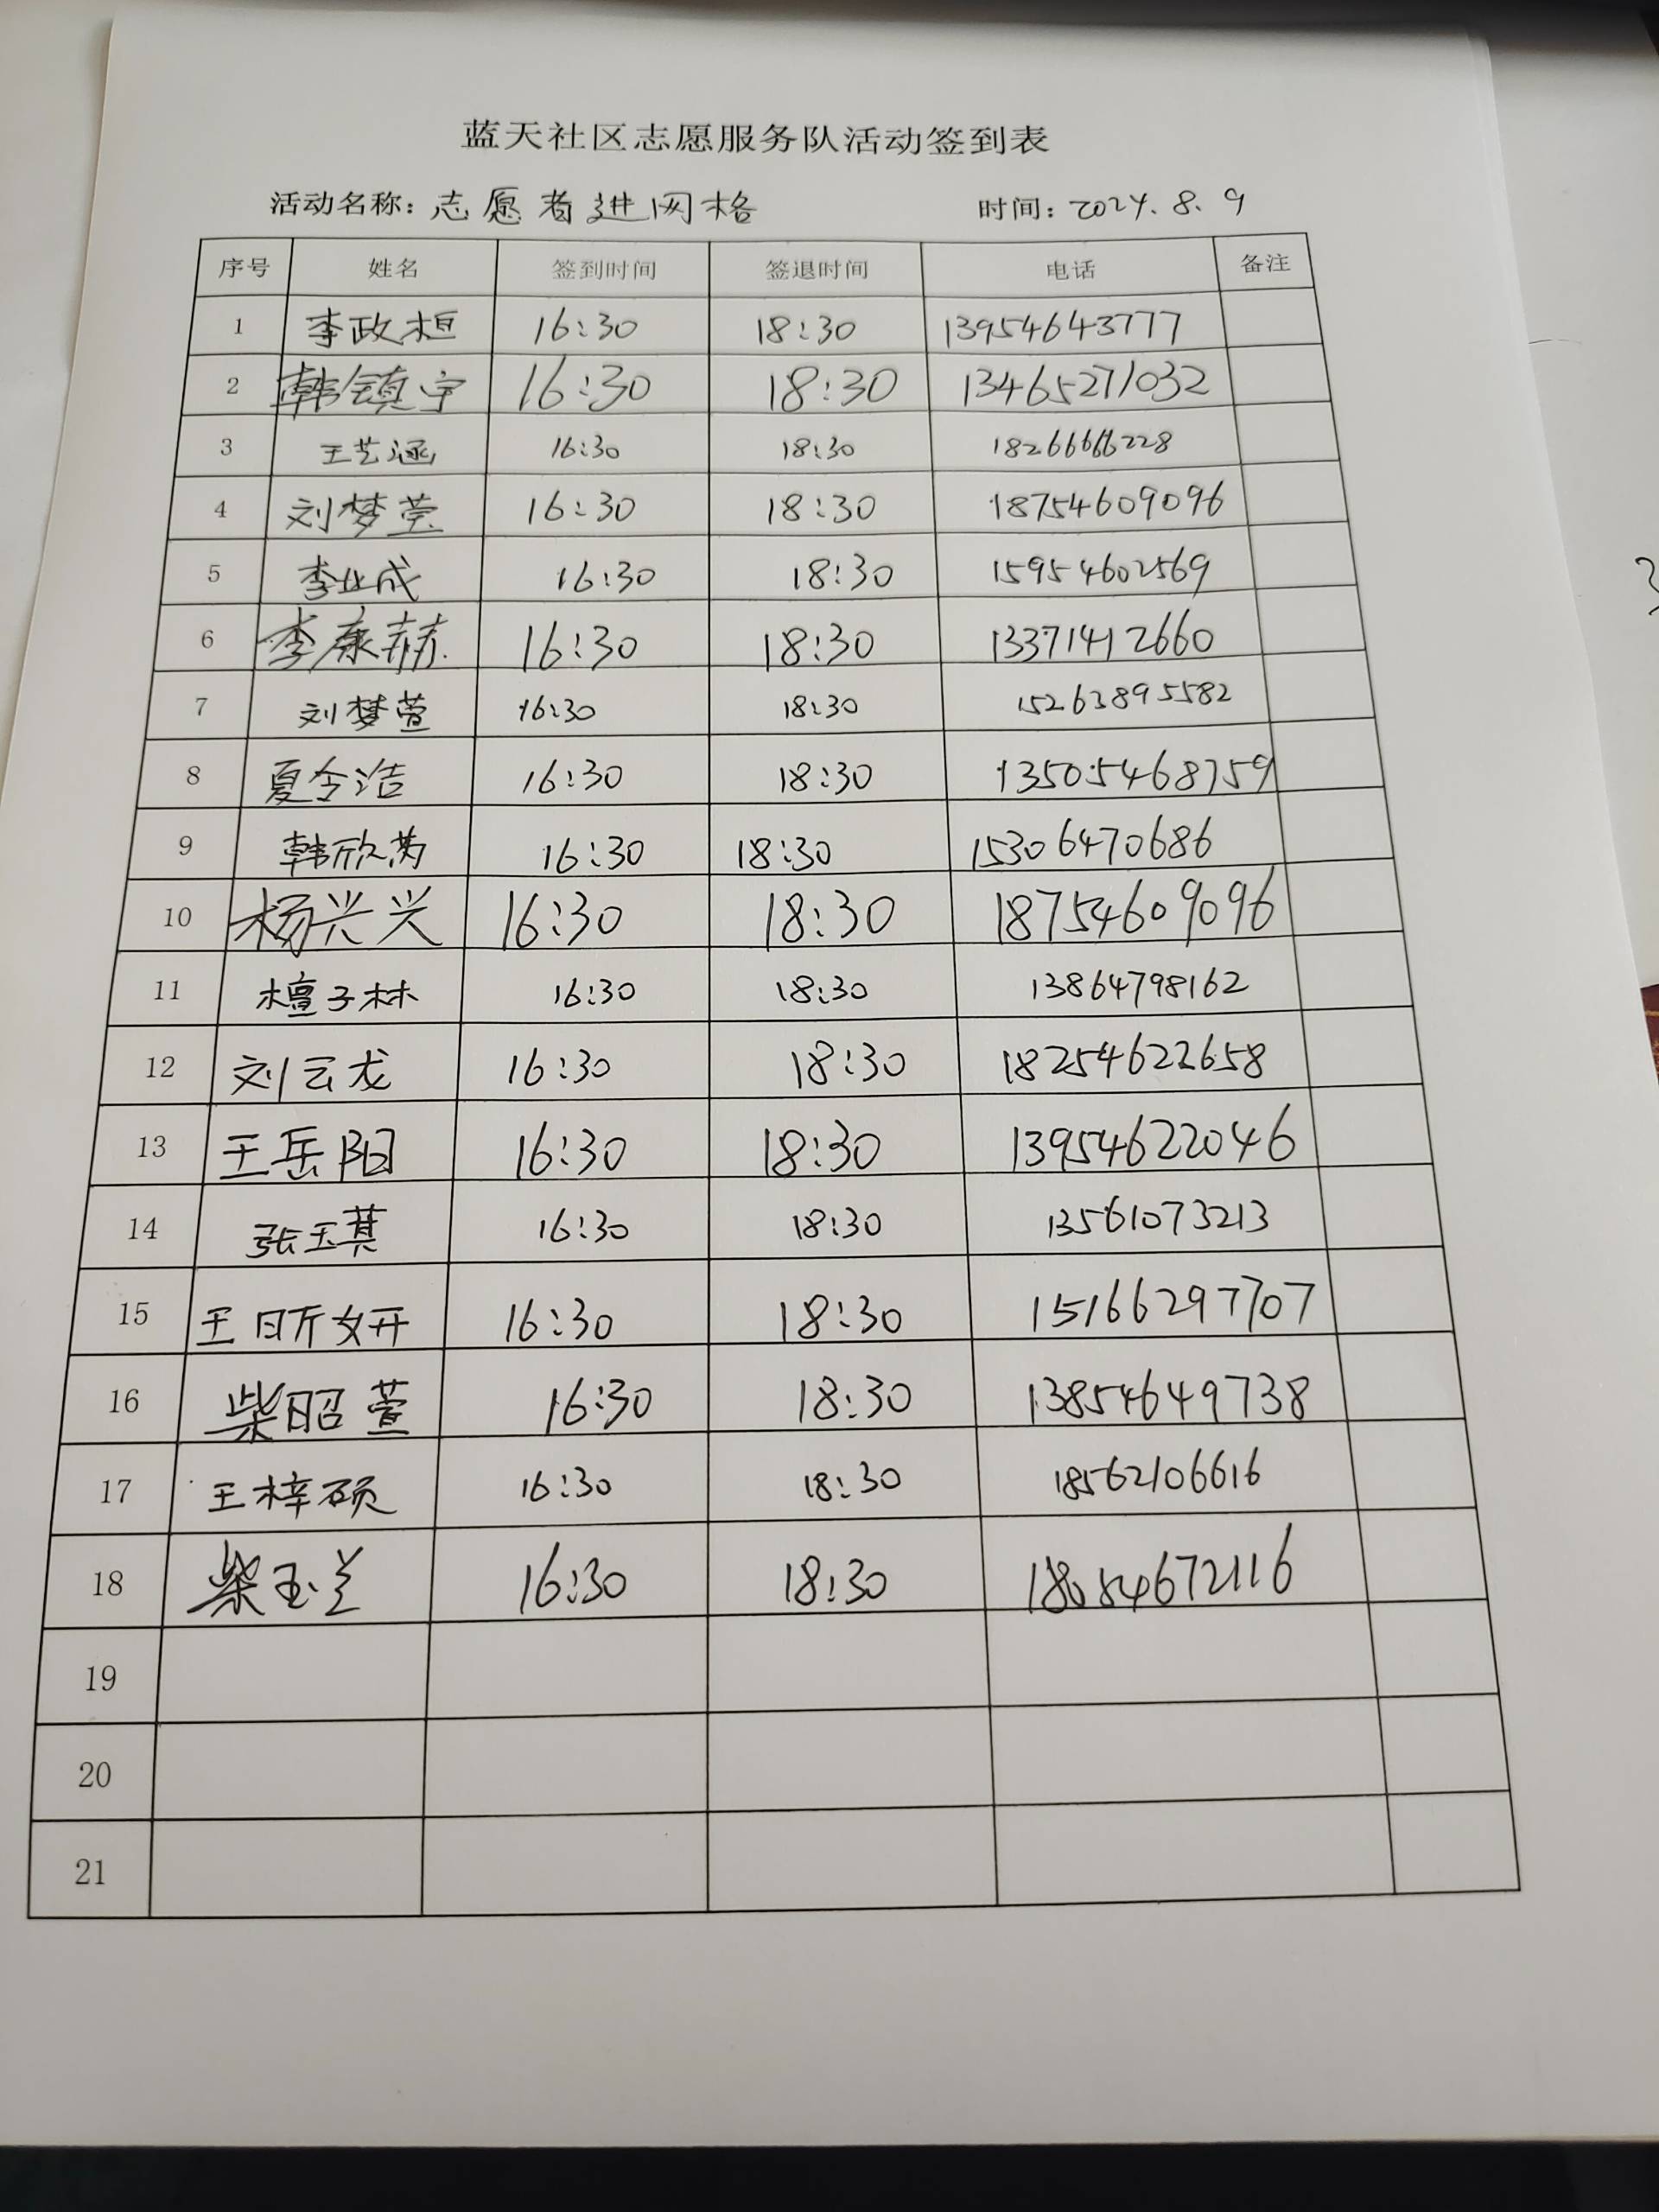 蓝天社区志愿服务队活动签到表
活动名称：志愿者进网格 时间：2024.8.9
序号 姓名 签到时间 签退时间 电话 备注
1 李政桓 16:30 18:30 13954643777
2 韩镇宇 16:30 18:30 13465271032
3 王艺涵 16:30 18:30 18266666228
4 刘梦莹 16:30 18:30 18754609096
5 李业成 16:30 18:30 15954602569
6 李康赫 16:30 18:30 13371412660
7 刘梦萱 16:30 18:30 15263895582
8 夏令浩 16:30 18:30 13505468759
9 韩欣芮 16:30 18:30 15306470686
10 杨兴兴 16:30 18:30 18754609096
11 檀子林 16:30 18:30 13864798162
12 刘云龙 16:30 18:30 18254622658
13 王岳阳 16:30 18:30 13954622046
14 张玉萁 16:30 18:30 13561073213
15 王昕妍 16:30 18:30 15166297707
16 柴昭萱 16:30 18:30 13854649738
17 王梓硕 16:30 18:30 18562106616
18 柴玉兰 16:30 18:30
19
20
21